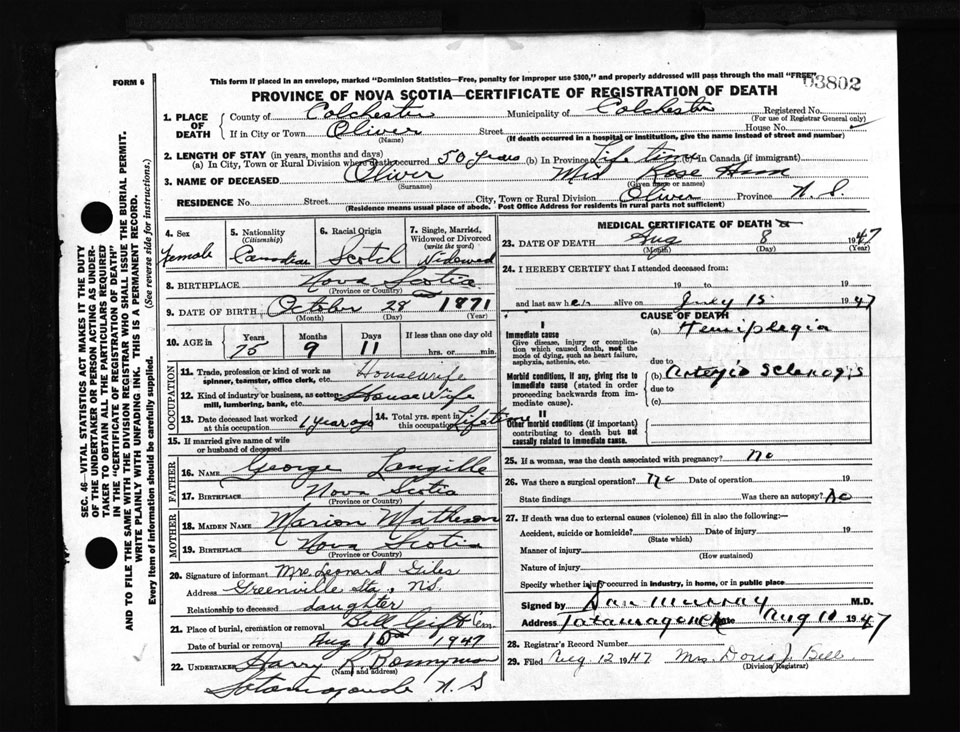 FORM 6
This form if placed in an envelope, marked "Dominion Statistics—Free, penalty for improper use $300," and properly addressed will pass through the mail "FREE"
03802
PROVINCE OF NOVA SCOTIA—CERTIFICATE OF REGISTRATION OF DEATH
1. PLACE OF DEATH
County of Colchester Municipality of Colchester Registered No.
(For use of Registrar General only)
If in City or Town Oliver Street House No.
(Name) (If death occurred in a hospital or institution, give the name instead of street and number)
2. LENGTH OF STAY (in years, months and days)
(a) In City, Town or Rural Division where death occurred 50 years (b) In Province Life time in Canada (if immigrant)
3. NAME OF DECEASED Oliver Mrs Rose
(Surname) (Given name or names)
RESIDENCE No. Street City, Town or Rural Division Oliver Province N. S.
(Residence means usual place of abode. Post Office Address for residents in rural parts not sufficient)
4. Sex Female
5. Nationality (Citizenship) Canadian
6. Racial Origin Scotch
7. Single, Married, Widowed or Divorced (write the word) Widowed
8. BIRTHPLACE Nova Scotia
(Province or Country)
9. DATE OF BIRTH October 28 1871
(Month) (Day) (Year)
10. AGE in Years Months Days If less than one day old
75 9 11 hrs. or min.
OCCUPATION
11. Trade, profession or kind of work as spinner, teamster, office clerk, etc. Housewife
12. Kind of industry or business, as cotton mill, lumbering, bank, etc. House Wife
13. Date deceased last worked at this occupation 1 year ago
14. Total yrs. spent in this occupation Lifetime
15. If married give name of wife or husband of deceased
FATHER
16. NAME George Langille
17. BIRTHPLACE Nova Scotia
(Province or Country)
MOTHER
18. MAIDEN NAME Marion Matheson
19. BIRTHPLACE Nova Scotia
(Province or Country)
20. Signature of informant Mrs. Leonard Giles
Address Greenville Sta., N.S.
Relationship to deceased daughter
21. Place of burial, cremation or removal Bell Gift Cem.
Date of burial or removal Aug 10 1947
22. UNDERTAKER Harry K Bonnyman
(Name and address)
Tatamagouche N. S
MEDICAL CERTIFICATE OF DEATH
23. DATE OF DEATH Aug 8 1947
(Month) (Day) (Year)
24. I HEREBY CERTIFY that I attended deceased from:
19 to 19
and last saw her alive on July 15 1947
CAUSE OF DEATH
I
Immediate cause
Give disease, injury or complication which caused death, not the mode of dying, such as heart failure, asphyxia, asthenia, etc.
(a) Hemiplegia
due to
Morbid conditions, if any, giving rise to immediate cause (stated in order proceeding backwards from immediate cause).
(b) Arterio Sclerosis
due to
(c)
II
Other morbid conditions (if important) contributing to death but not causally related to immediate cause.
25. If a woman, was the death associated with pregnancy? No
26. Was there a surgical operation? No Date of operation 19
State findings Was there an autopsy? No
27. If death was due to external causes (violence) fill in also the following:—
Accident, suicide or homicide? Date of injury 19
(State which)
Manner of injury
(How sustained)
Nature of injury
Specify whether injury occurred in industry, in home, or in public place
Signed by Dan Murray M.D.
Address Tatamagouche Date Aug 10 1947
28. Registrar's Record Number
29. Filed Aug 12 1947 Mrs. Doris J. Bell
(Division Registrar)
SEC. 46—VITAL STATISTICS ACT MAKES IT THE DUTY
OF THE UNDERTAKER OR PERSON ACTING AS UNDERTAKER TO OBTAIN ALL THE PARTICULARS REQUIRED
IN THE "CERTIFICATE OF REGISTRATION OF DEATH"
AND TO FILE THE SAME WITH THE DIVISION REGISTRAR WHO SHALL ISSUE THE BURIAL PERMIT.
WRITE PLAINLY WITH UNFADING INK. THIS IS A PERMANENT RECORD.
Every item of information should be carefully supplied. (See reverse side for instructions.)